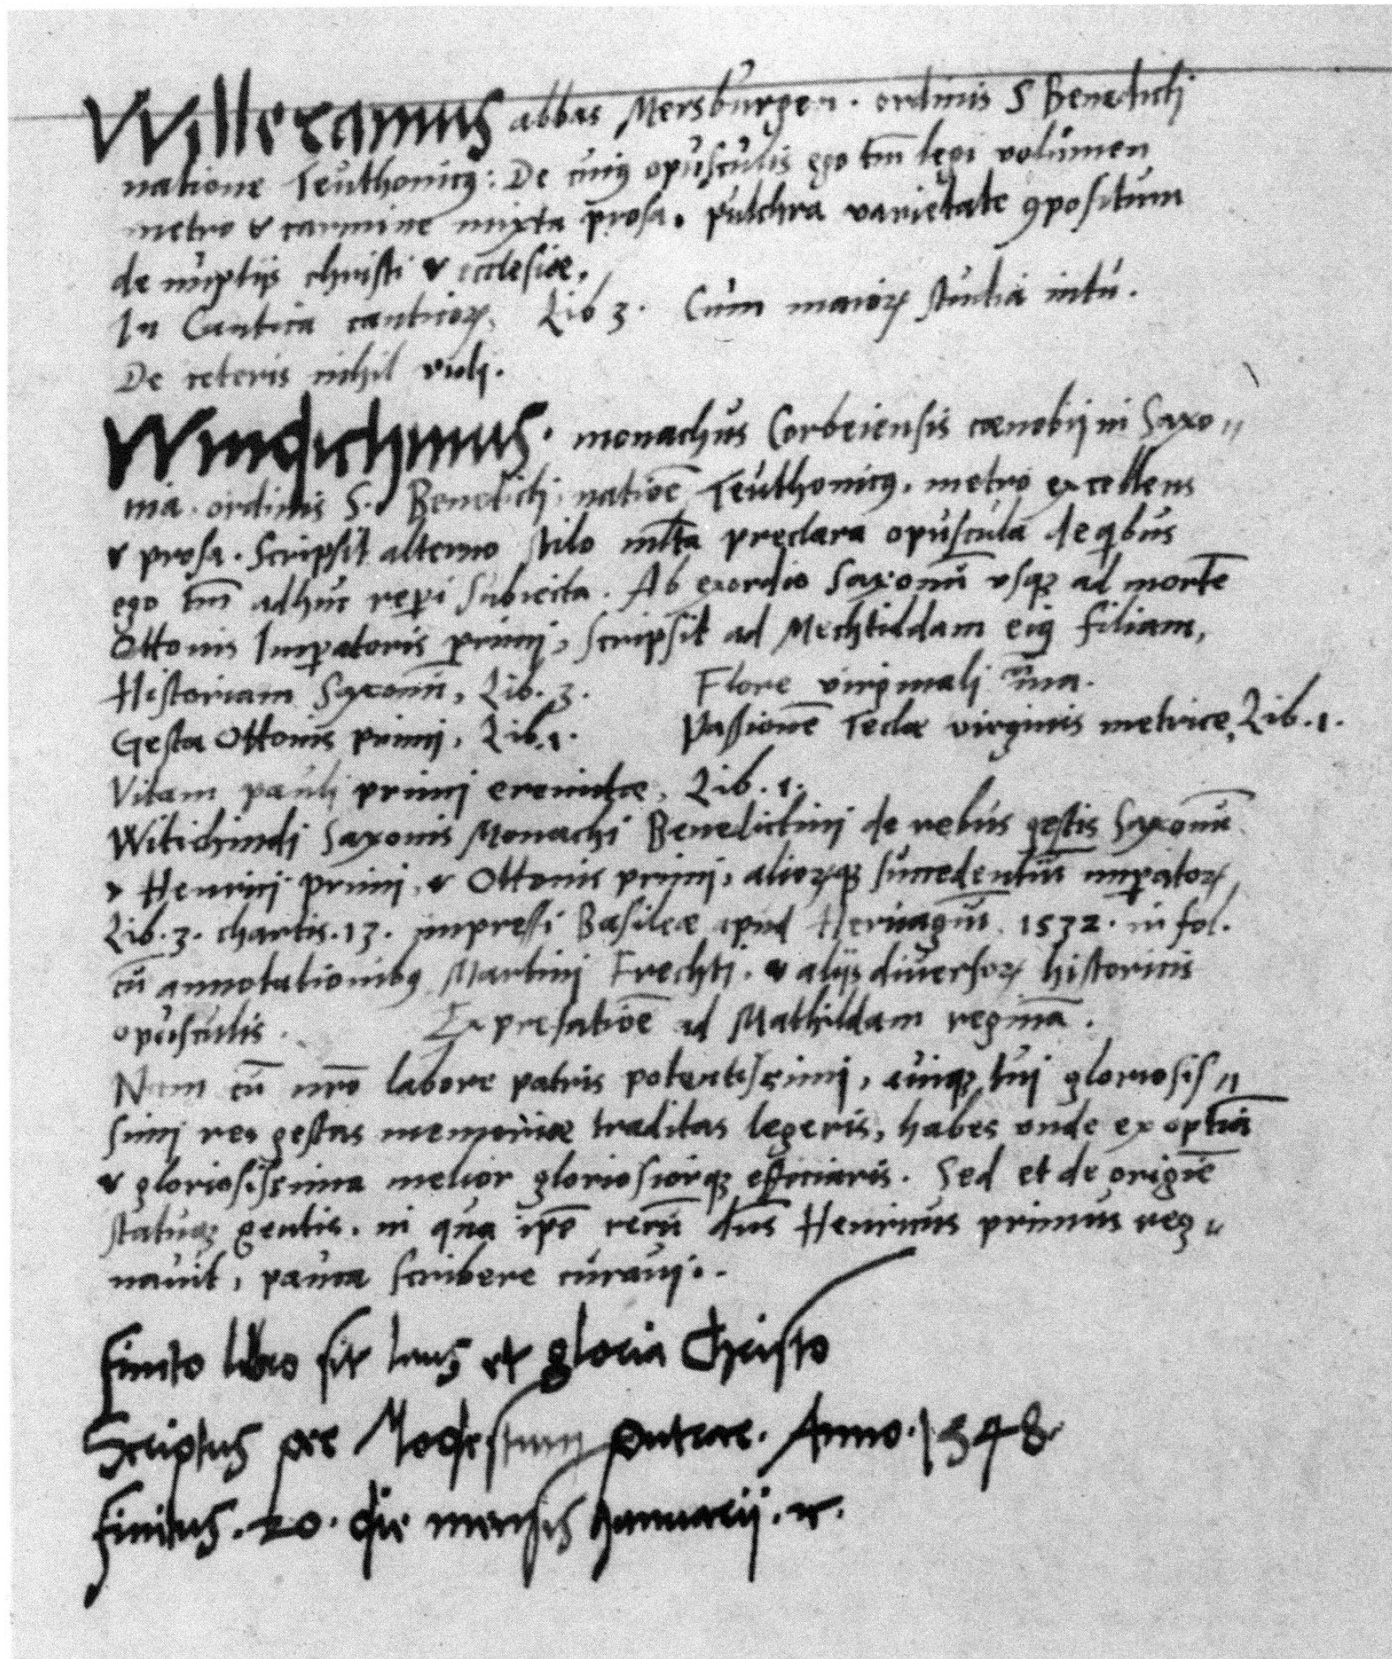 Willeramus abbas Mersburgen. ordinis S Benedicti
natione Teuthonicꝰ: De cuiꝰ opusculis ego tm̄ legi volumen
metro & carmine mixta prosa, pulchra varietate ꝯpositum
de nuptijs christi & ecclesiæ,
In Cantica canticoꝝ, Lib 3. Cum maioꝝ studia intu.
De ceteris nihil vidj.
Windichinus. monachus Corbeiensis cœnobij in Saxo〃
nia. ordinis S. Benedicti, natiōe Teuthonicꝰ, metro excellens
& prosa. Scripsit alterno stilo mlta preclara opuscula de qbus
ego tm̄ adhuc repi subiecta. Ab exordio Saxonū vsqꝫ ad mortē
Ottonis Impatoris primj, scripsit ad Mechtildam eiꝰ filiam,
Historiam Saxonū, Lib. 3. Flore virginali
Gesta Ottonis primj, Lib. 1. Passionē Teclæ virginis metrice, Lib. 1.
Vitam paulj primj eremitæ, Lib. 1.
Witichindj Saxonis Monachi Benedictinj de rebus gestis Saxonū
& Henricj primj, & Ottonis primj, alioꝝqꝫ succedentiū impatoꝝ
Lib. 3. chartis. 13. impressi Basileæ apud Heruagiū. 1532. in fol.
cū annotationibꝰ Martinj Frechti. & alijs diuersoꝝ historicis
opusculis. Ex prefatiōe ad Mathildam reginā.
Nam cū nr̄o labore patris potentissimj, auiqꝫ tuj gloriosis〃
simj res gestas memoriæ traditas legeris, habes vnde ex optīa
& gloriosissima melior gloriosiorqꝫ efficiaris. Sed et de origīe
statuqꝫ gentis, in qua ip̄e rerū dn̄s Henricus primus reg〃
nauit, pauca scribere curauj.
Finito libro sit laus et gloria Christo
Scriptus per Modestum puterer. Anno. 1548.
finitus. 20. die mensis Januarij. &c.